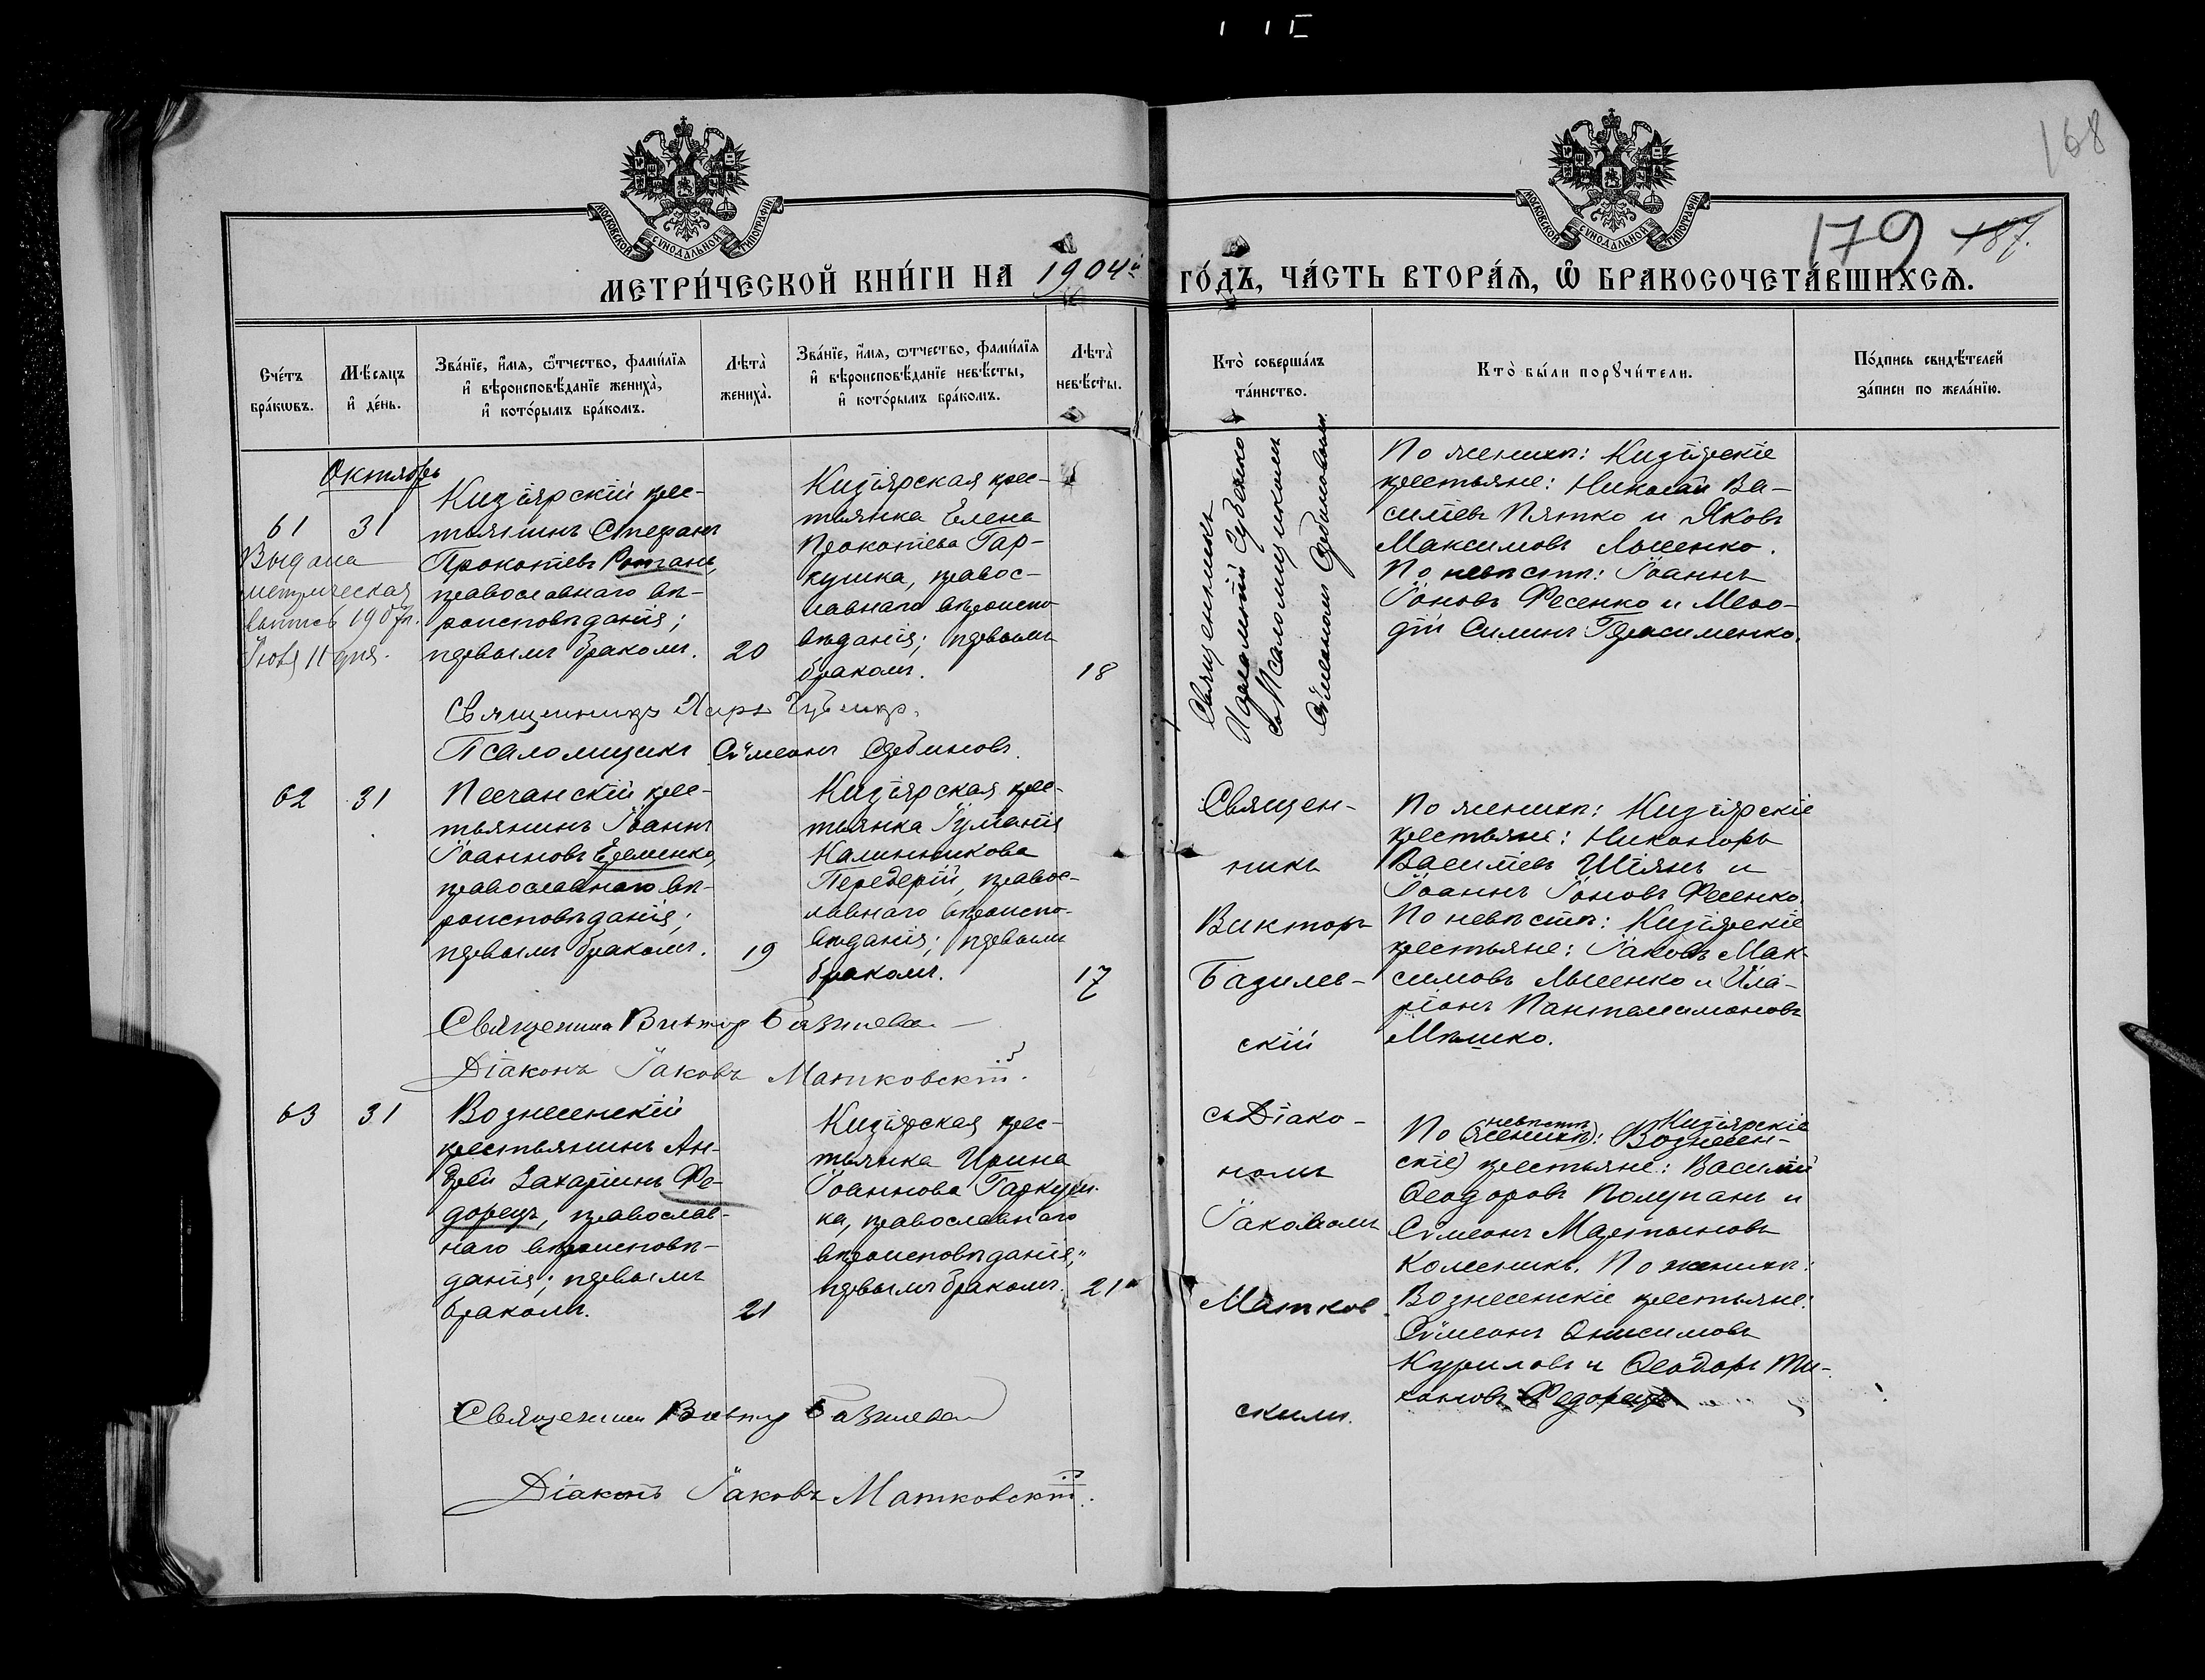 168
179 187.
МОСКОВСКОЙ СѴНОДАЛЬНОЙ ТИПОГРАФІИ
МОСКОВСКОЙ СѴНОДАЛЬНОЙ ТИПОГРАФІИ
МЕТРИ́ЧЕСКОЙ КНИ́ГИ НА 1904й ГО́ДЪ, ЧА́СТЬ ВТОРА́Ѧ, Ѡ҆ БРАКОСОЧЕТА́ВШИХСѦ.
Сче́тъ
бра́кѡвъ.
Мѣ́сяцъ
и҆ де́нь.
Зва́нїе, и҆́мѧ, ѻ҆́тчество, фами́лїѧ
и҆ вѣроисповѣ́данїе жениха̀,
и҆ кото́рымъ бра́комъ.
Лѣта̀
жениха̀.
Зва́нїе, и҆́мѧ, ѻ҆́тчество, фами́лїѧ
и҆ вѣроисповѣ́данїе невѣ́сты,
и҆ кото́рымъ бра́комъ.
Лѣта̀
невѣ́сты.
Кто̀ соверша́лъ
та́инство.
Кто̀ бы́ли порꙋчи́тели.
По́дпись свидѣ́телей
за́писи по жела́нїю.
Октябрь
61
31
Выдана
метрическая
выпись 1907г.
Іюня 11 дня.
Кизіярскій крес-
тьянинъ Стефанъ
Прокопіевъ Ротань,
православнаго вѣ-
роисповѣданія;
первымъ бракомъ.
20
Кизіярская крес-
тьянка Елена
Прокопіева Гар-
кушка, правос-
лавнаго вѣроиспо-
вѣданія; первымъ
бракомъ.
18
Священникъ
съ Псаломщикомъ
Сѵмеономъ
По женихѣ: Кизіярскіе
крестьяне: Николай Ва-
силіевъ Пятко и Яковъ
Максимовъ Лысенко.
По невѣстѣ: Іоаннъ
Іоновъ Фесенко и Меѳо-
дій Силинъ Герасименко.
Священникъ
Псаломщикъ Сѵмеонъ
62
31
Песчанскій крес-
тьянинъ Іоаннъ
Іоанновъ Еременко,
православнаго вѣ-
роисповѣданія;
первымъ бракомъ.
19
Кизіярская крес-
тьянка Іуліанія
Калинникова
Передерій, правос-
лавнаго вѣроиспо-
вѣданія; первымъ
бракомъ.
17
Священ-
никъ
Викторъ
Базилев-
скій
съ Діако-
номъ
Іаковомъ
Матков-
скимъ.
По женихѣ: Кизіярскіе
крестьяне: Никаноръ
Василіевъ Шіянъ и
Іоаннъ Іоновъ Фесенко.
По невѣстѣ: Кизіярскіе
крестьяне: Іаковъ Мак-
симовъ Лысенко и Ила-
ріонъ Пантелеимоновъ
Мяшко.
Священникъ Викторъ Базилев
Діаконъ Іаковъ Матковскій.
63
31
Вознесенскій
крестьянинъ Ан-
дрей Захаріинъ Фе-
дорецъ, православ-
наго вѣроисповѣ-
данія; первымъ
бракомъ.
21
Кизіярская крес-
тьянка Ирина
Іоаннова Гаркуш-
ка, православнаго
вѣроисповѣданія;
первымъ бракомъ.
21
невѣстѣ Кизіярскіе
По (женихѣ): (Вознесен-
скіе) крестьяне: Василій
Ѳеодоровъ Полупанъ и
Сѵмеонъ Мартыновъ
Колесникъ. По женихѣ:
Вознесенскіе крестьяне:
Сѵмеонъ Онисимовъ
Куриловъ и Ѳеодоръ Ти-
хоновъ Федорецъ
Священникъ Викторъ Базилев
Діаконъ Іаковъ Матковскій.